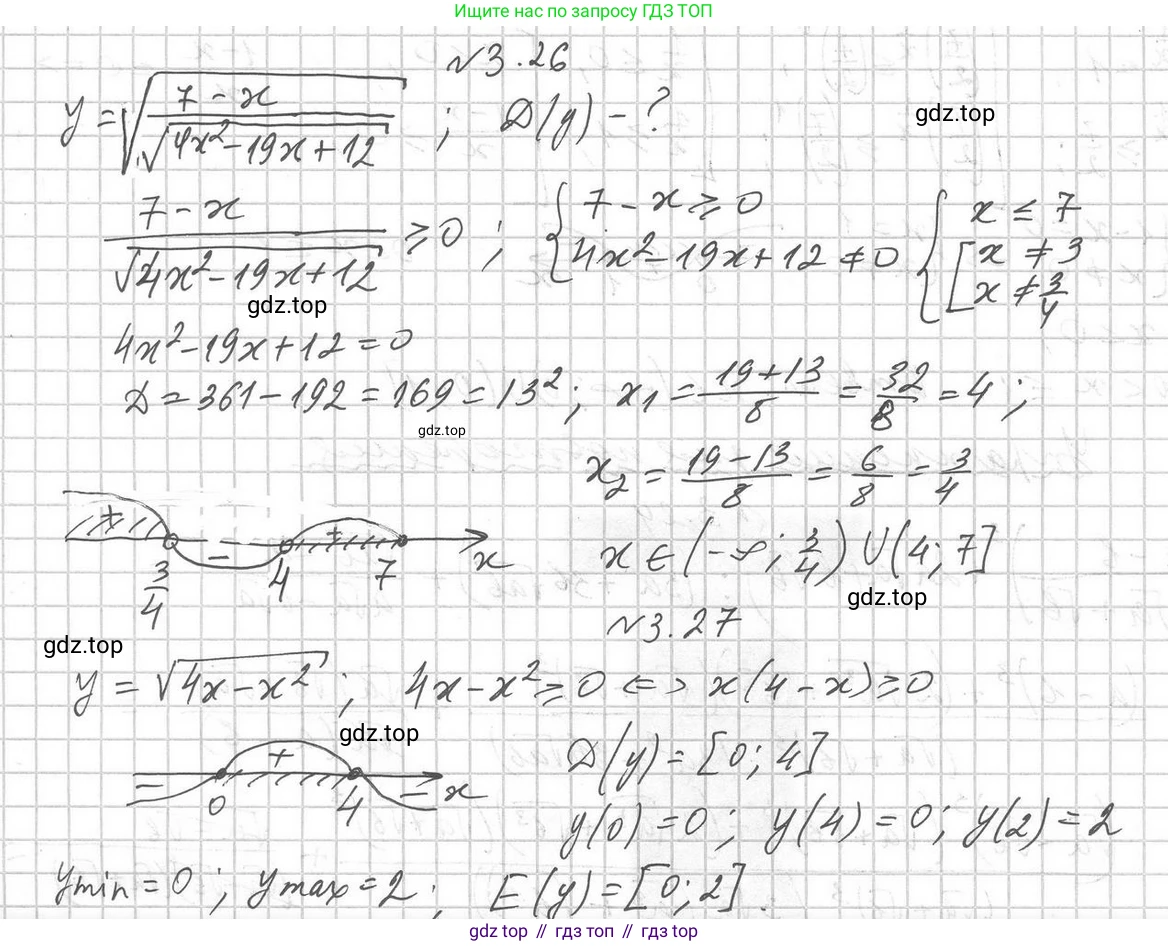 Ищите нас по запросу ГДЗ ТОП
№3.26
y = √((7 - x)/(√(4x² - 19x + 12))) ; D(y) - ?
gdz.top
(7 - x)/(√(4x² - 19x + 12)) ≥ 0 ; { 7 - x ≥ 0 ; 4x² - 19x + 12 ≠ 0 { x ≤ 7 [ x ≠ 3 ; x ≠ 3/4
gdz.top
4x² - 19x + 12 = 0
D = 361 - 192 = 169 = 13² ; x₁ = (19 + 13)/8 = 32/8 = 4 ;
gdz.top
x₂ = (19 - 13)/8 = 6/8 = 3/4
+ - + x
3/4 4 7
x ∈ (-∞; 3/4) ∪ (4; 7]
gdz.top
№3.27
gdz.top
y = √(4x - x²) ; 4x - x² ≥ 0 <=> x(4 - x) ≥ 0
gdz.top
- + - x
0 4
D(y) = [0; 4]
y(0) = 0 ; y(4) = 0; y(2) = 2
ymin = 0 ; ymax = 2 ; E(y) = [0; 2].
gdz top // гдз топ // gdz.top